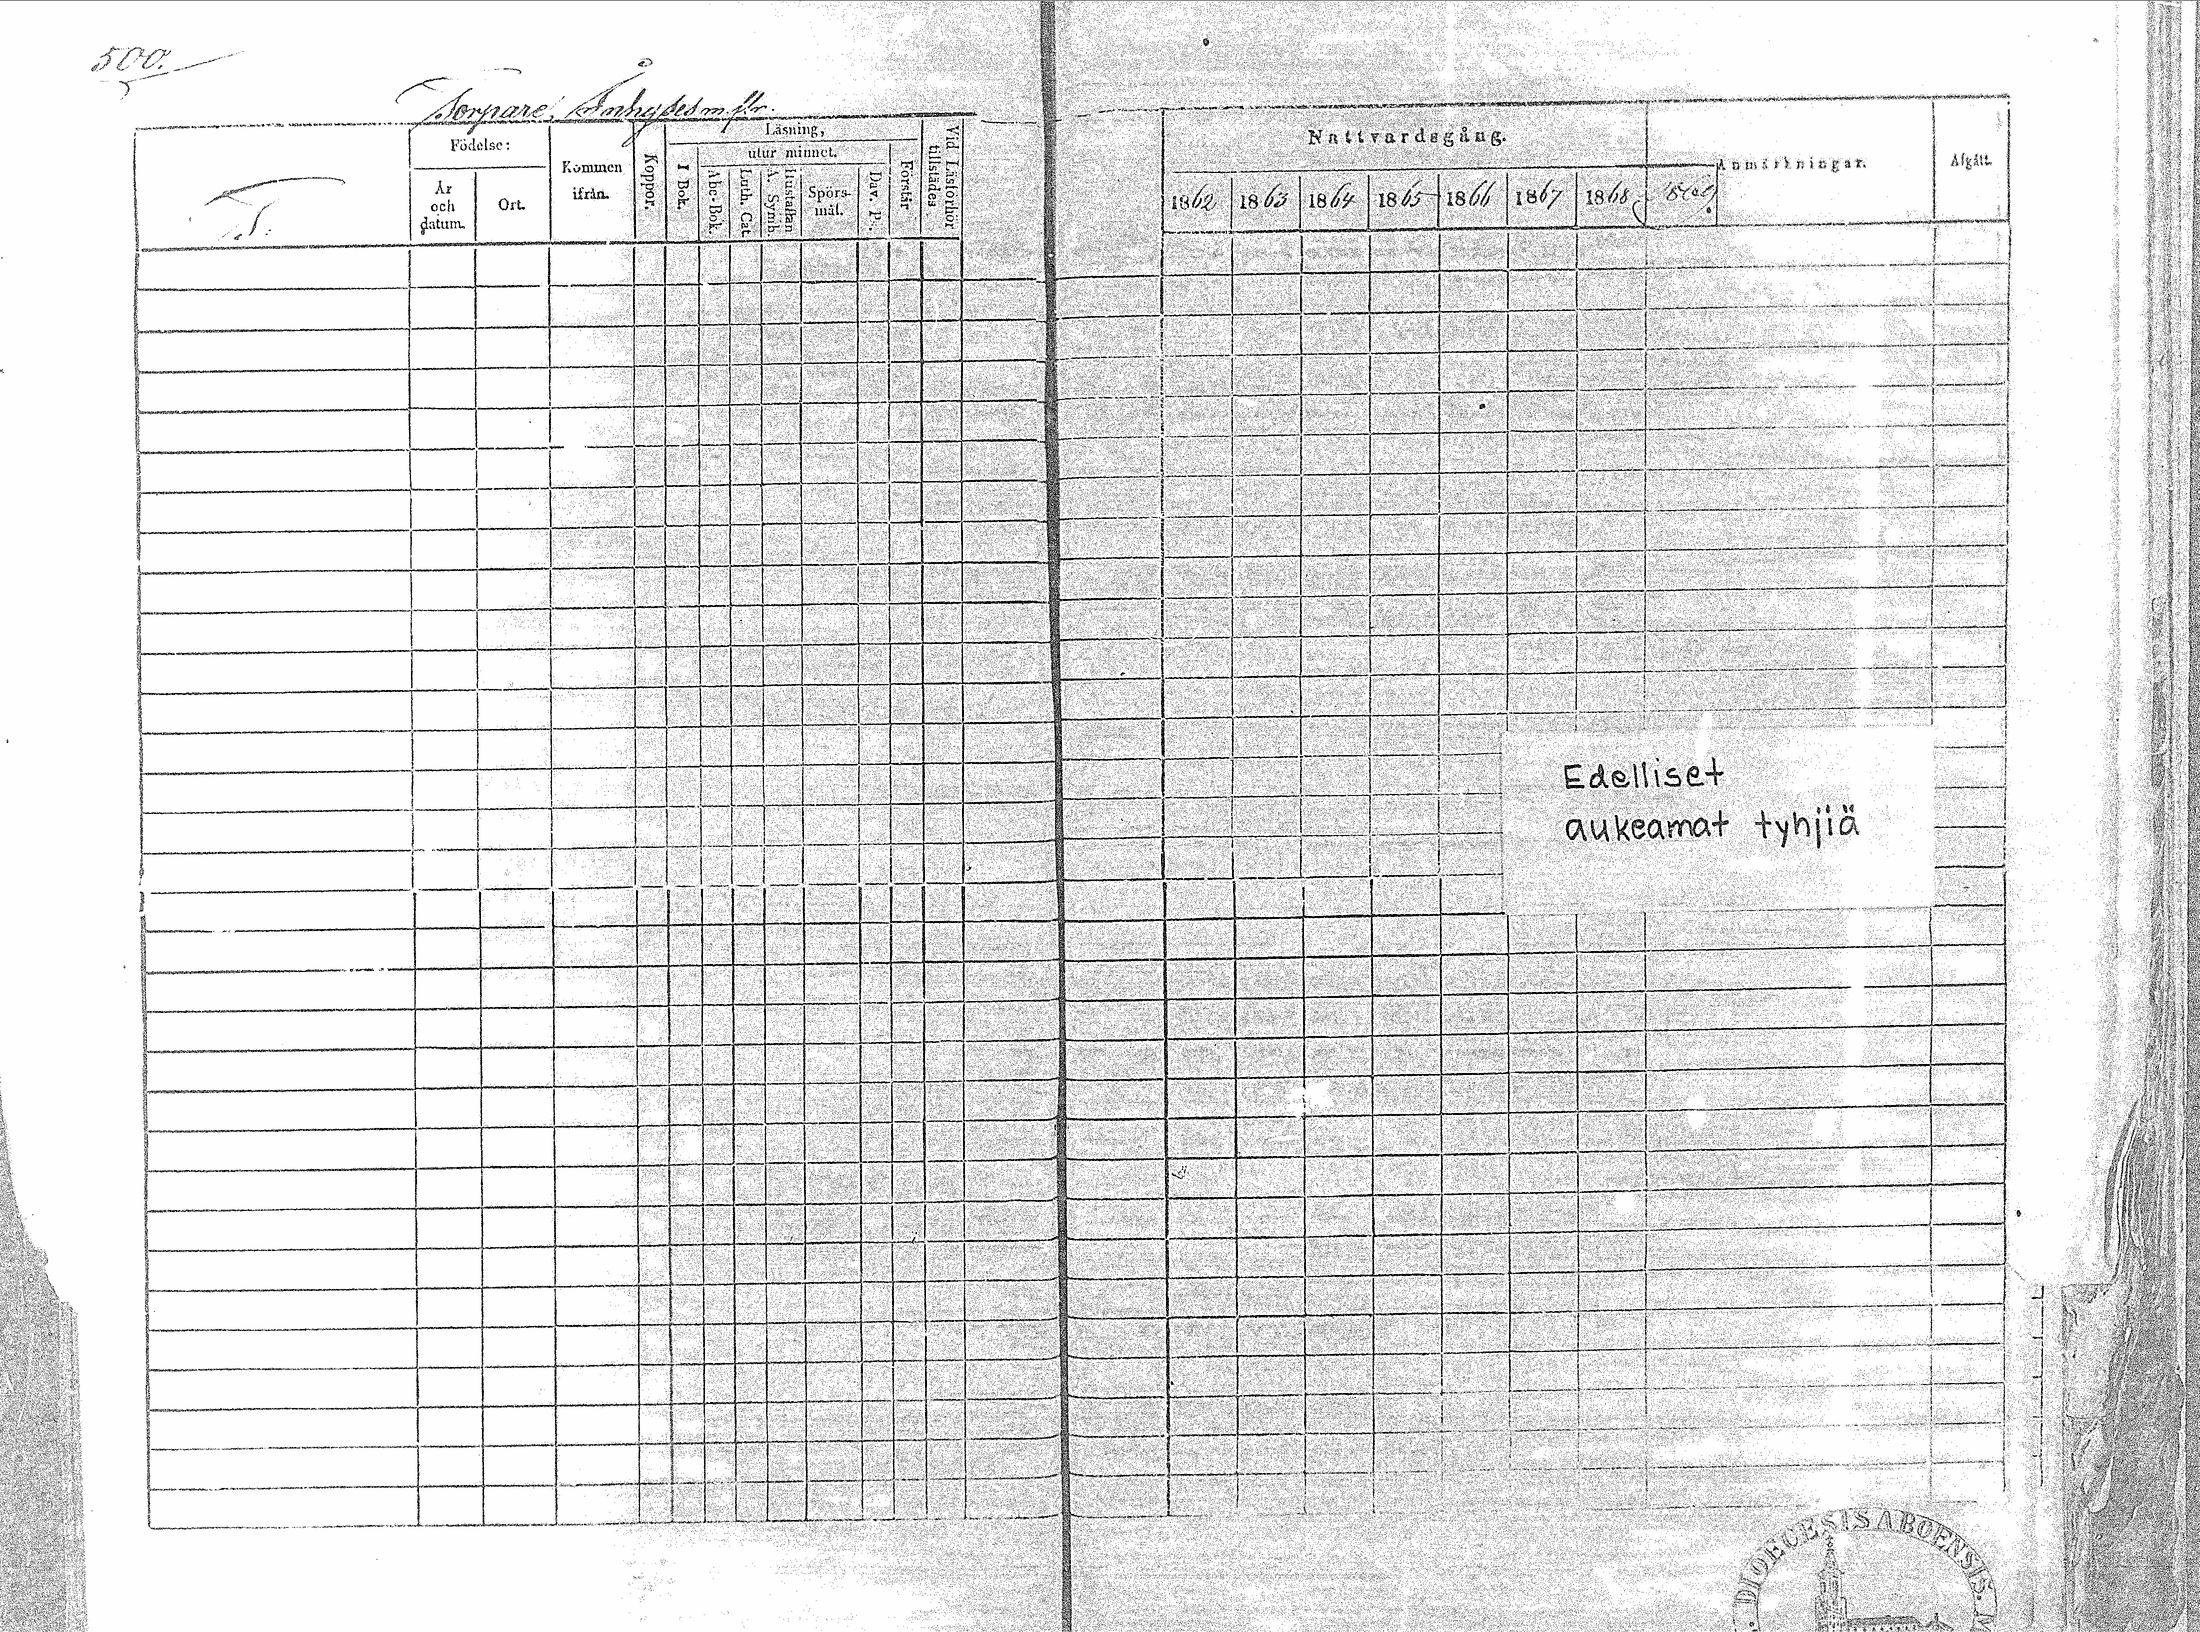 500.
Torpare, Inhyses m. fl.
T.
Födelse:
År
och
datum.
Ort.
Kommen
ifrån.
Koppor.
Läsning,
I Bok.
utur minnet.
Abc-Bok.
Luth. Cat.
Hustaflan
A. Symb.
Spörs-
mål.
Dav. Ps.
Förstår
Vid Läsförhör
tillstädes
Nattvardsgång.
1862 1863 1864 1865 1866 1867 1868 1869
Anmärkningar.
Afgått.
Edelliset
aukeamat tyhjiä
DIOECESIS ABOENSIS.